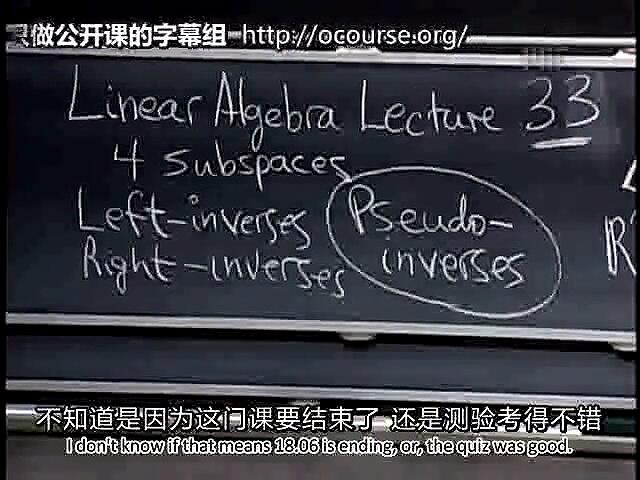 做公开课的字幕组 http://ocourse.org/
Linear Algebra Lecture 33
4 subspaces
Left-inverses
Right-inverses
Pseudo-
inverses
R
不知道是因为这门课要结束了 还是测验考得不错
I don't know if that means 18.06 is ending, or, the quiz was good.